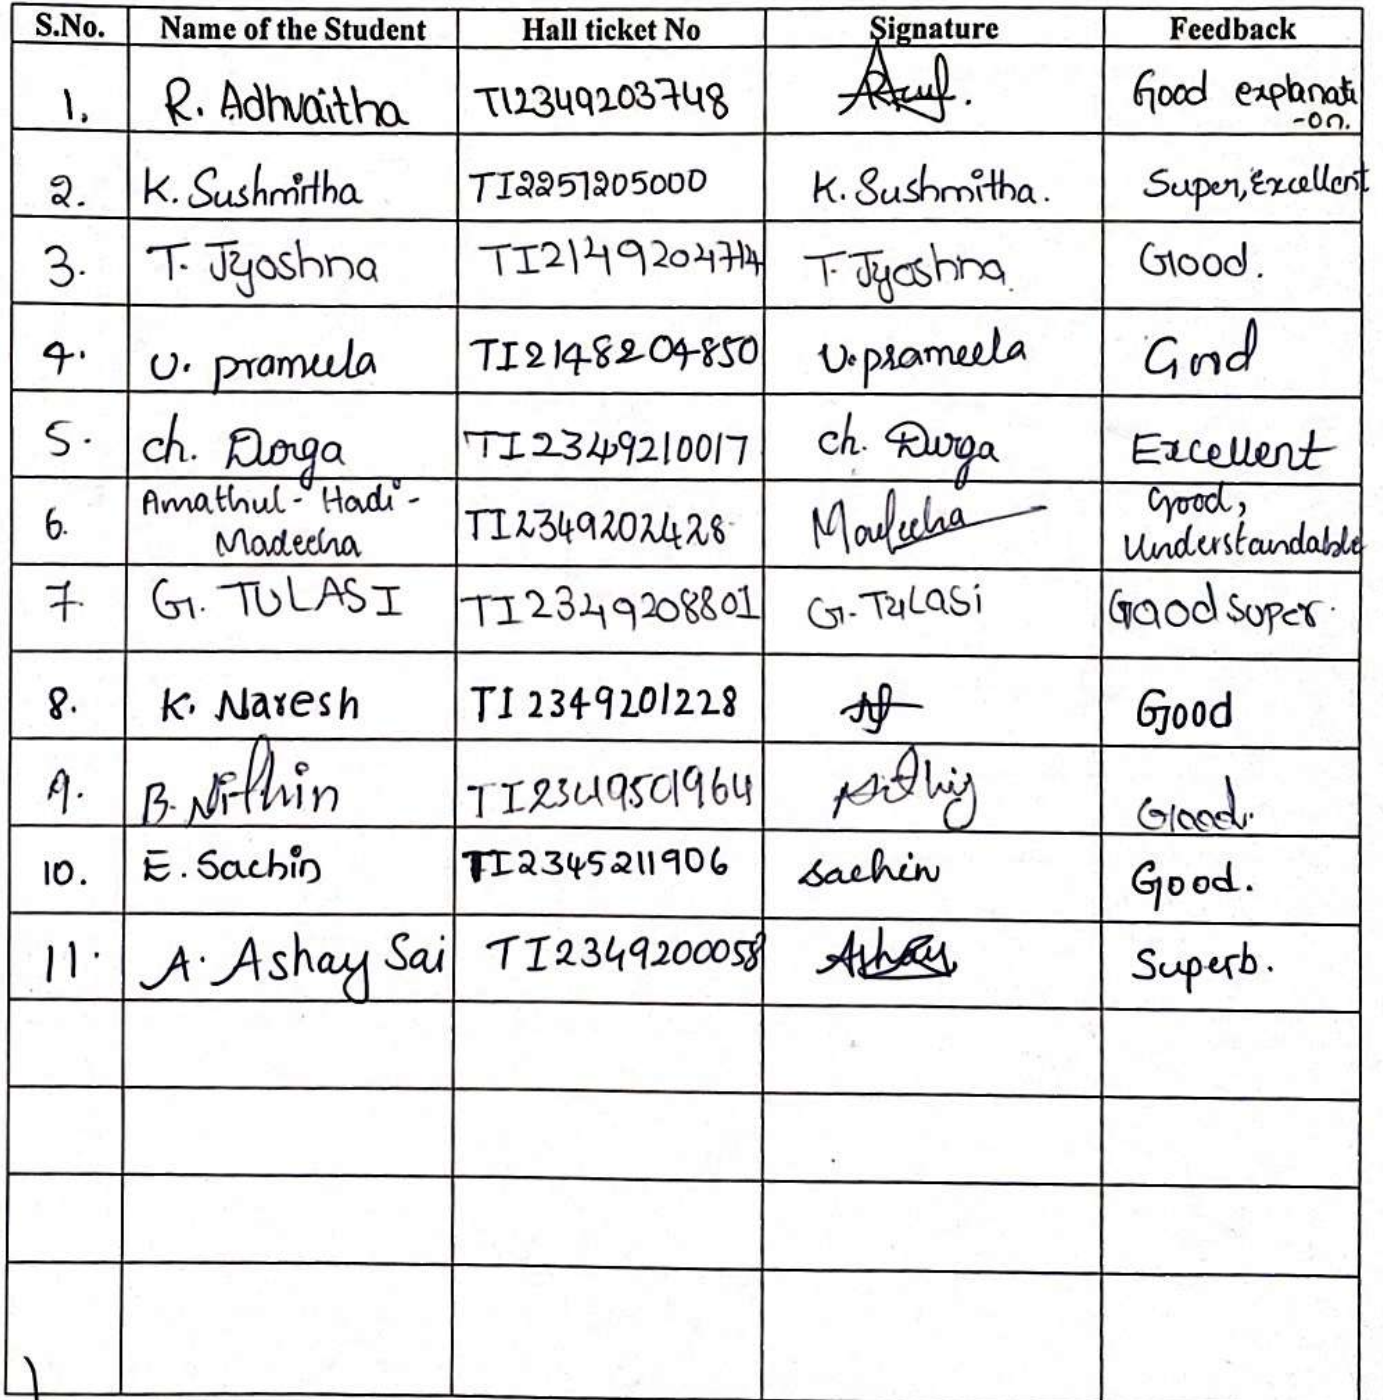 S.No. Name of the Student Hall ticket No Signature Feedback
1. R. Adhvaitha TI2349203748 Good explanati
-on.
2. K. Sushmitha TI2257205000 K. Sushmitha. Super, Excellent
3. T. Jyoshna TI2149204714 T. Jyoshna. Good.
4. U. prameela TI2148204850 U. prameela Good
5. ch. Durga TI2349210017 ch. Durga Excellent
6. Amathul - Hadi - Good,
Madeeha TI2349202428 Madeeha Understandable
7. G. TULASI TI2349208801 G. TULASi Good super.
8. K. Naresh TI2349201228 Good
9. B. Nithin TI2349501964 Good.
10. E. Sachin TI2345211906 sachin Good.
11. A. Ashay Sai TI2349200058 Ashay Superb.